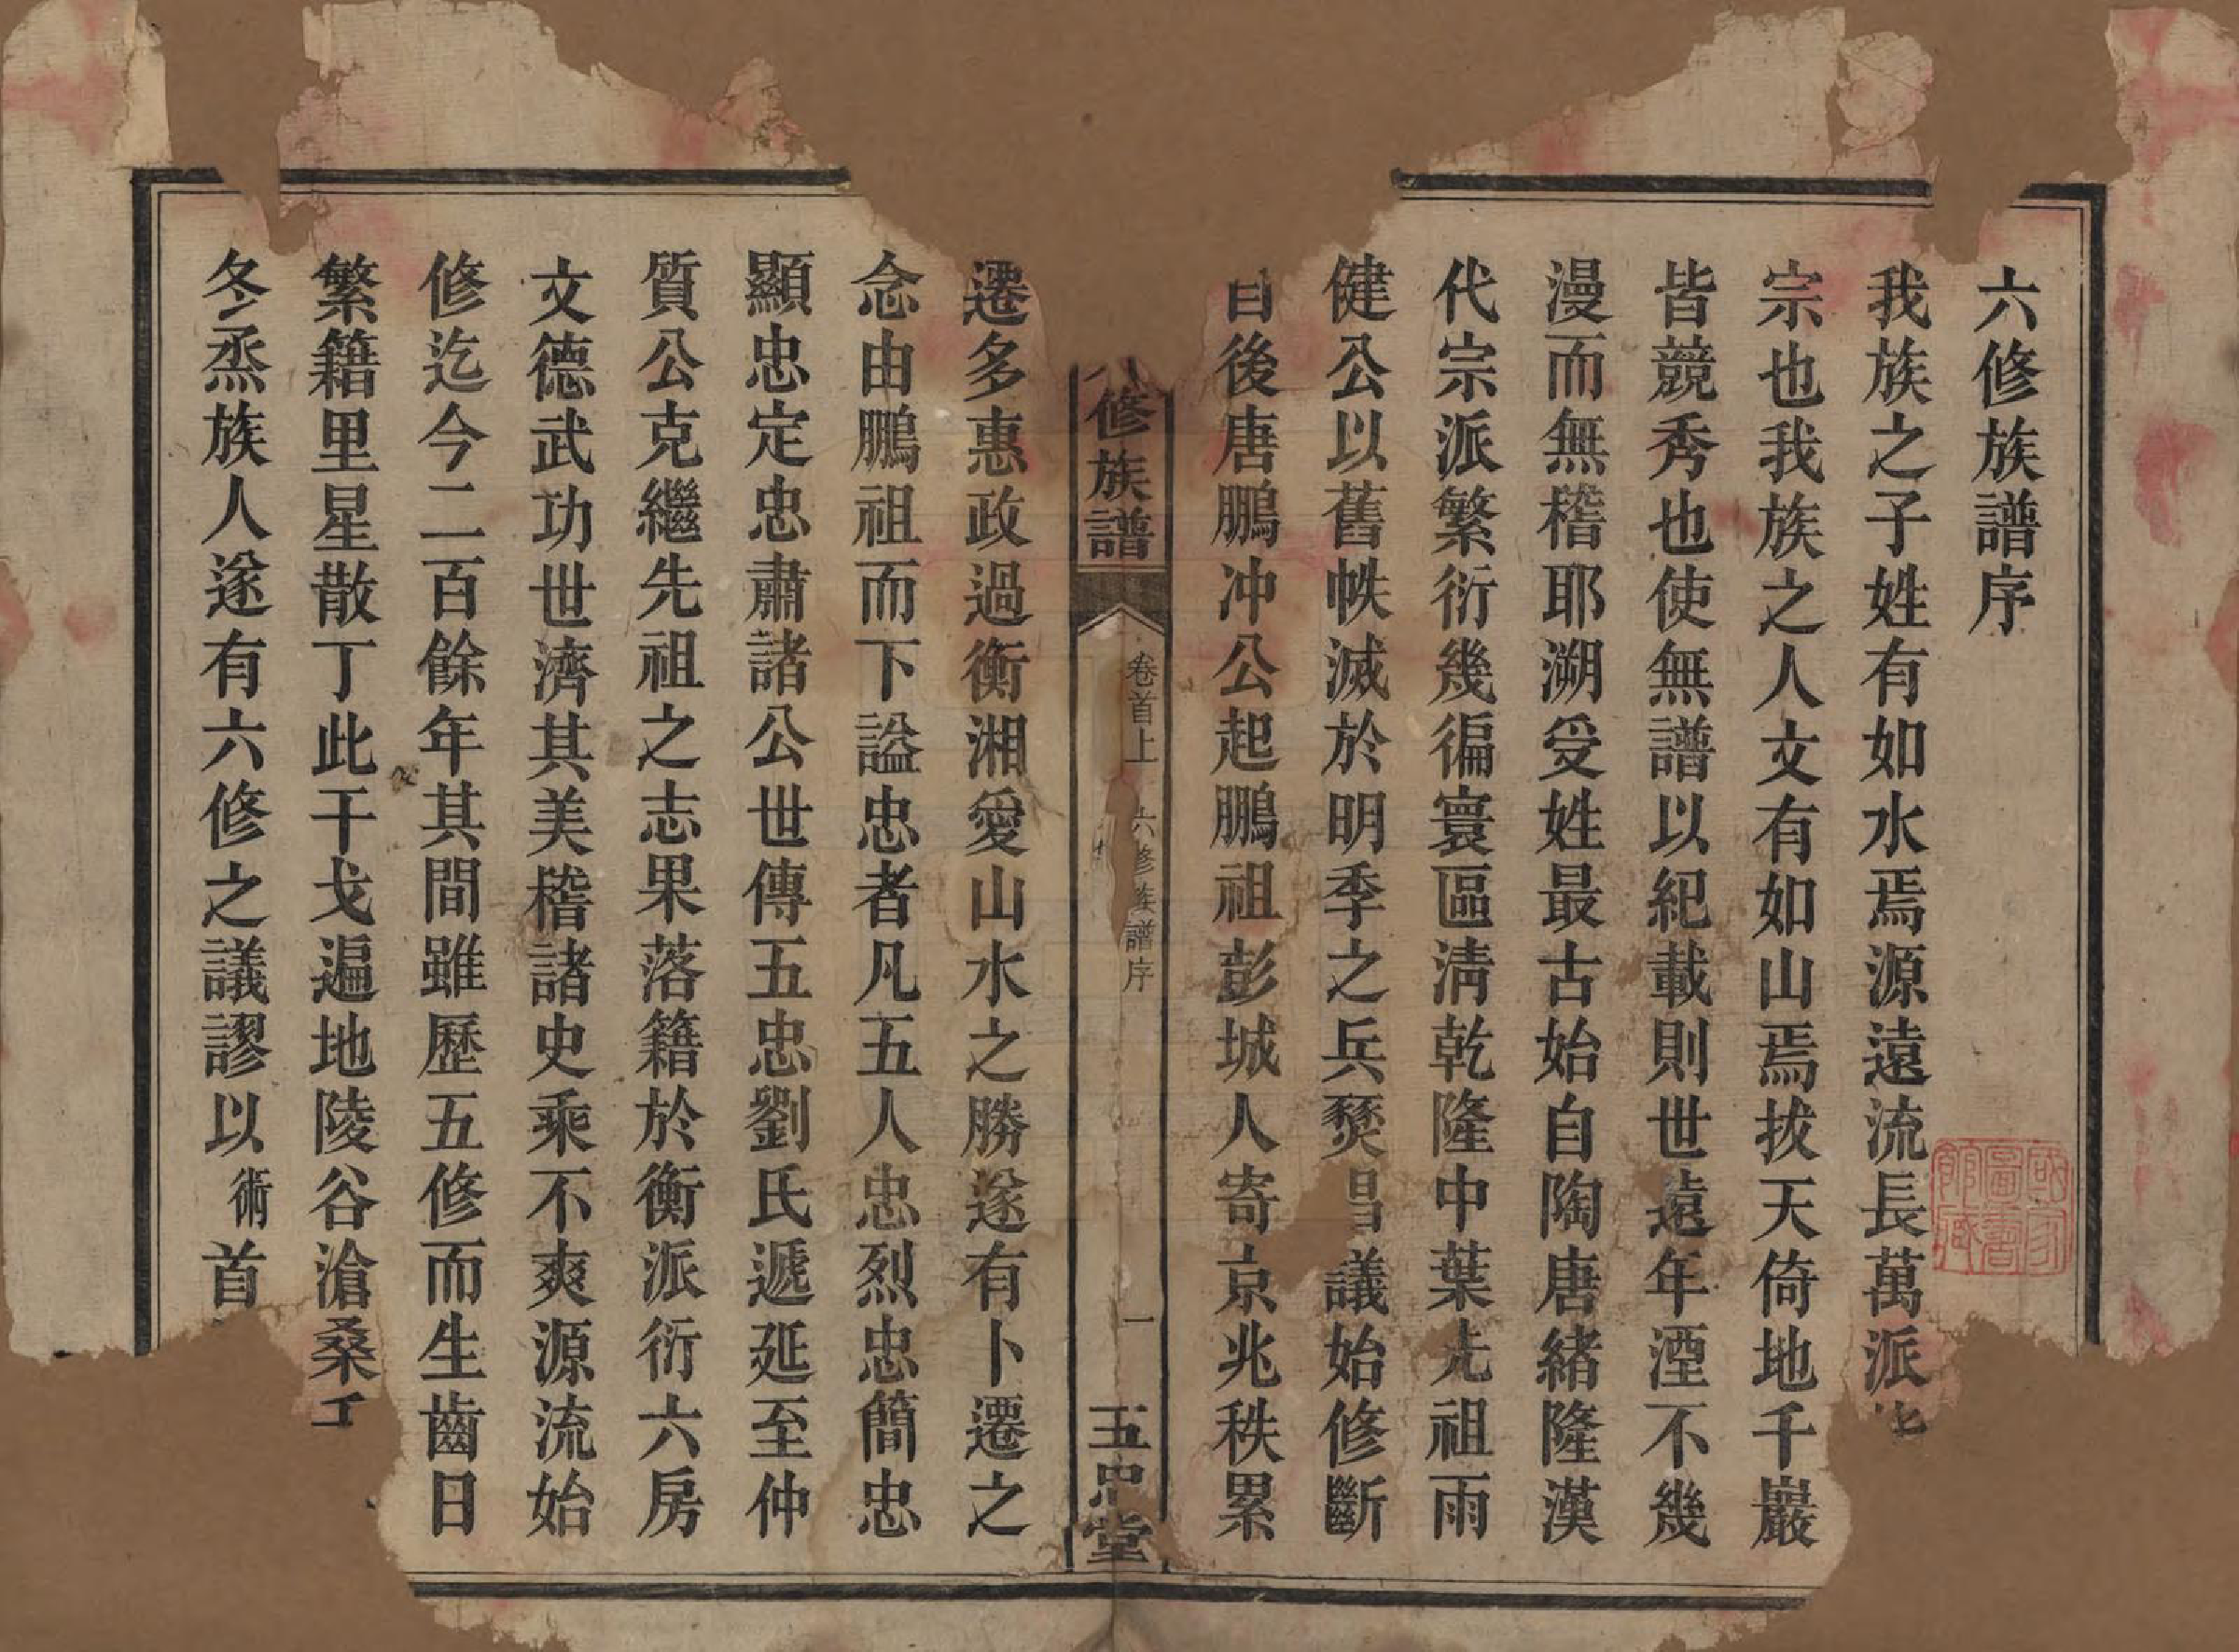 六修族譜序
我族之子姓有如水焉源遠流長萬派
宗也我族之人文有如山焉拔天倚地千巖
皆競秀也使無譜以紀載則世遠年湮不幾
漫而無稽耶溯受姓最古始自陶唐緒隆漢
代宗派繁衍幾徧寰區清乾隆中葉先祖雨
健公以舊帙滅於明季之兵燹昌議始修斷
自後唐鵬冲公起鵬祖彭城人寄京兆秩累
修族譜
卷首上
六修族譜序
一
五忠堂
遷多惠政過衡湘愛山水之勝遂有卜遷之
念由鵬祖而下謚忠者凡五人忠烈忠簡忠
顯忠定忠肅諸公世傳五忠劉氏遞延至仲
質公克繼先祖之志果落籍於衡派衍六房
文德武功世濟其美稽諸史乘不爽源流始
修迄今二百餘年其間雖歷五修而生齒日
繁籍里星散丁此干戈遍地陵谷滄桑
冬烝族人遂有六修之議謬以術首
國家圖書館藏